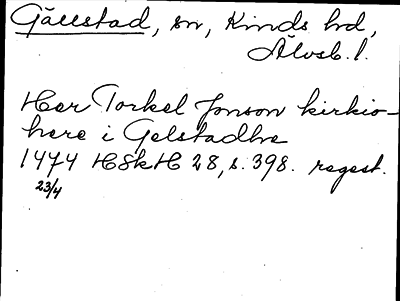 Gällstad, sn, Kinds hd,
Älvsb. l.
Her Torkel Jonson kirkio-
here i Gelstadhe
1474 HSkH 28, s. 398. regest.
23/4